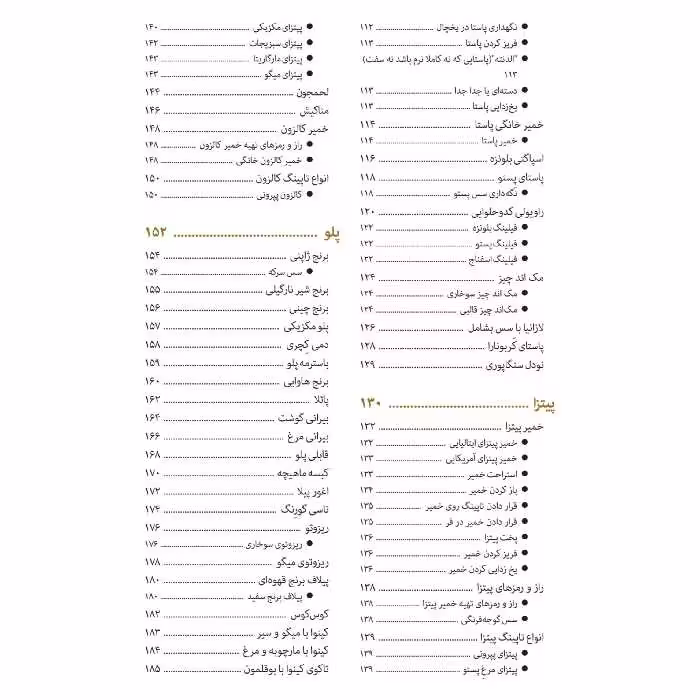 ● نگهداری پاستا در یخچال ۱۱۲
● فریز کردن پاستا ۱۱۳
● "الدنته"(پاستایی که نه کاملا نرم باشد نه سفت)
۱۱۳
● دسته‌ای یا جدا جدا ۱۱۳
● یخ‌زدایی پاستا ۱۱۳
خمیر خانگی پاستا ۱۱۴
● خمیر پاستا ۱۱۴
اسپاگتی بلونزه ۱۱۶
پاستای پستو ۱۱۸
● نگه‌داری سس پستو ۱۱۸
راویولی کدوحلوایی ۱۲۰
● فیلینگ بلونزه ۱۲۲
● فیلینگ پستو ۱۲۲
● فیلینگ اسفناج ۱۲۲
مک اند چیز ۱۲۴
● مک اند چیز سوخاری ۱۲۴
● مک‌اند چیز قالبی ۱۲۴
لازانیا با سس بشامل ۱۲۶
پاستای کَربونارا ۱۲۸
نودل سنگاپوری ۱۲۹
پیتزا ۱۳۰
خمیر پیتزا ۱۳۲
● خمیر پیتزای ایتالیایی ۱۳۲
● خمیر پیتزای آمریکایی ۱۳۳
● استراحت خمیر ۱۳۳
● باز کردن خمیر ۱۳۴
● قرار دادن تاپینگ روی خمیر ۱۳۵
● قرار دادن خمیر در فر ۱۳۵
● پخت پیتزا ۱۳۶
● فریز کردن خمیر ۱۳۶
● یخ زدایی کردن خمیر ۱۳۶
راز و رمزهای پیتزا ۱۳۸
● راز و رمزهای تهیه خمیر پیتزا ۱۳۸
● سس گوجه‌فرنگی ۱۳۸
انواع تاپینگ پیتزا ۱۳۹
● پیتزای پپرونی ۱۳۹
● پیتزای مرغ پستو ۱۳۹
● پیتزای مکزیکی ۱۴۰
● پیتزای سبزیجات ۱۴۲
● پیتزای مارگاریتا ۱۴۳
● پیتزای میگو ۱۴۳
لحمجون ۱۴۴
مناکیش ۱۴۶
خمیر کالزون ۱۴۸
● راز و رمزهای تهیه خمیر کالزون ۱۴۸
● خمیر کالزون خانگی ۱۴۸
انواع تاپینگ کالزون ۱۵۰
● کالزون پپرونی ۱۵۰
پلو ۱۵۲
برنج ژاپنی ۱۵۴
● سس سرکه ۱۵۴
برنج شیر نارگیلی ۱۵۵
برنج چینی ۱۵۶
پلو مکزیکی ۱۵۷
دمی کچری ۱۵۸
باسترمه پلو ۱۵۹
برنج هاوایی ۱۶۰
پائلا ۱۶۲
بیرانی گوشت ۱۶۴
بیرانی مرغ ۱۶۶
قابلی پلو ۱۶۸
کبسه ماهیچه ۱۷۰
اغور بیلا ۱۷۲
ناسی گورنگ ۱۷۴
ریزوتو ۱۷۶
● ریزوتوی سوخاری ۱۷۶
ریزوتوی میگو ۱۷۸
پیلاف برنج قهوه‌ای ۱۸۰
● پیلاف برنج سفید ۱۸۰
کوس‌کوس ۱۸۲
کینوا با میگو و سیر ۱۸۳
کینوا با مارچوبه و مرغ ۱۸۴
تاکوی کینوا با بوقلمون ۱۸۵